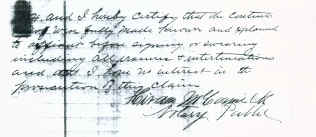 and I hereby certify that the contents
were fully made known and explained
to affiant before signing or swearing
including all erasures & interlineations
and that I have no interest in the
prosecution of this claim
Hiram
Notary Public